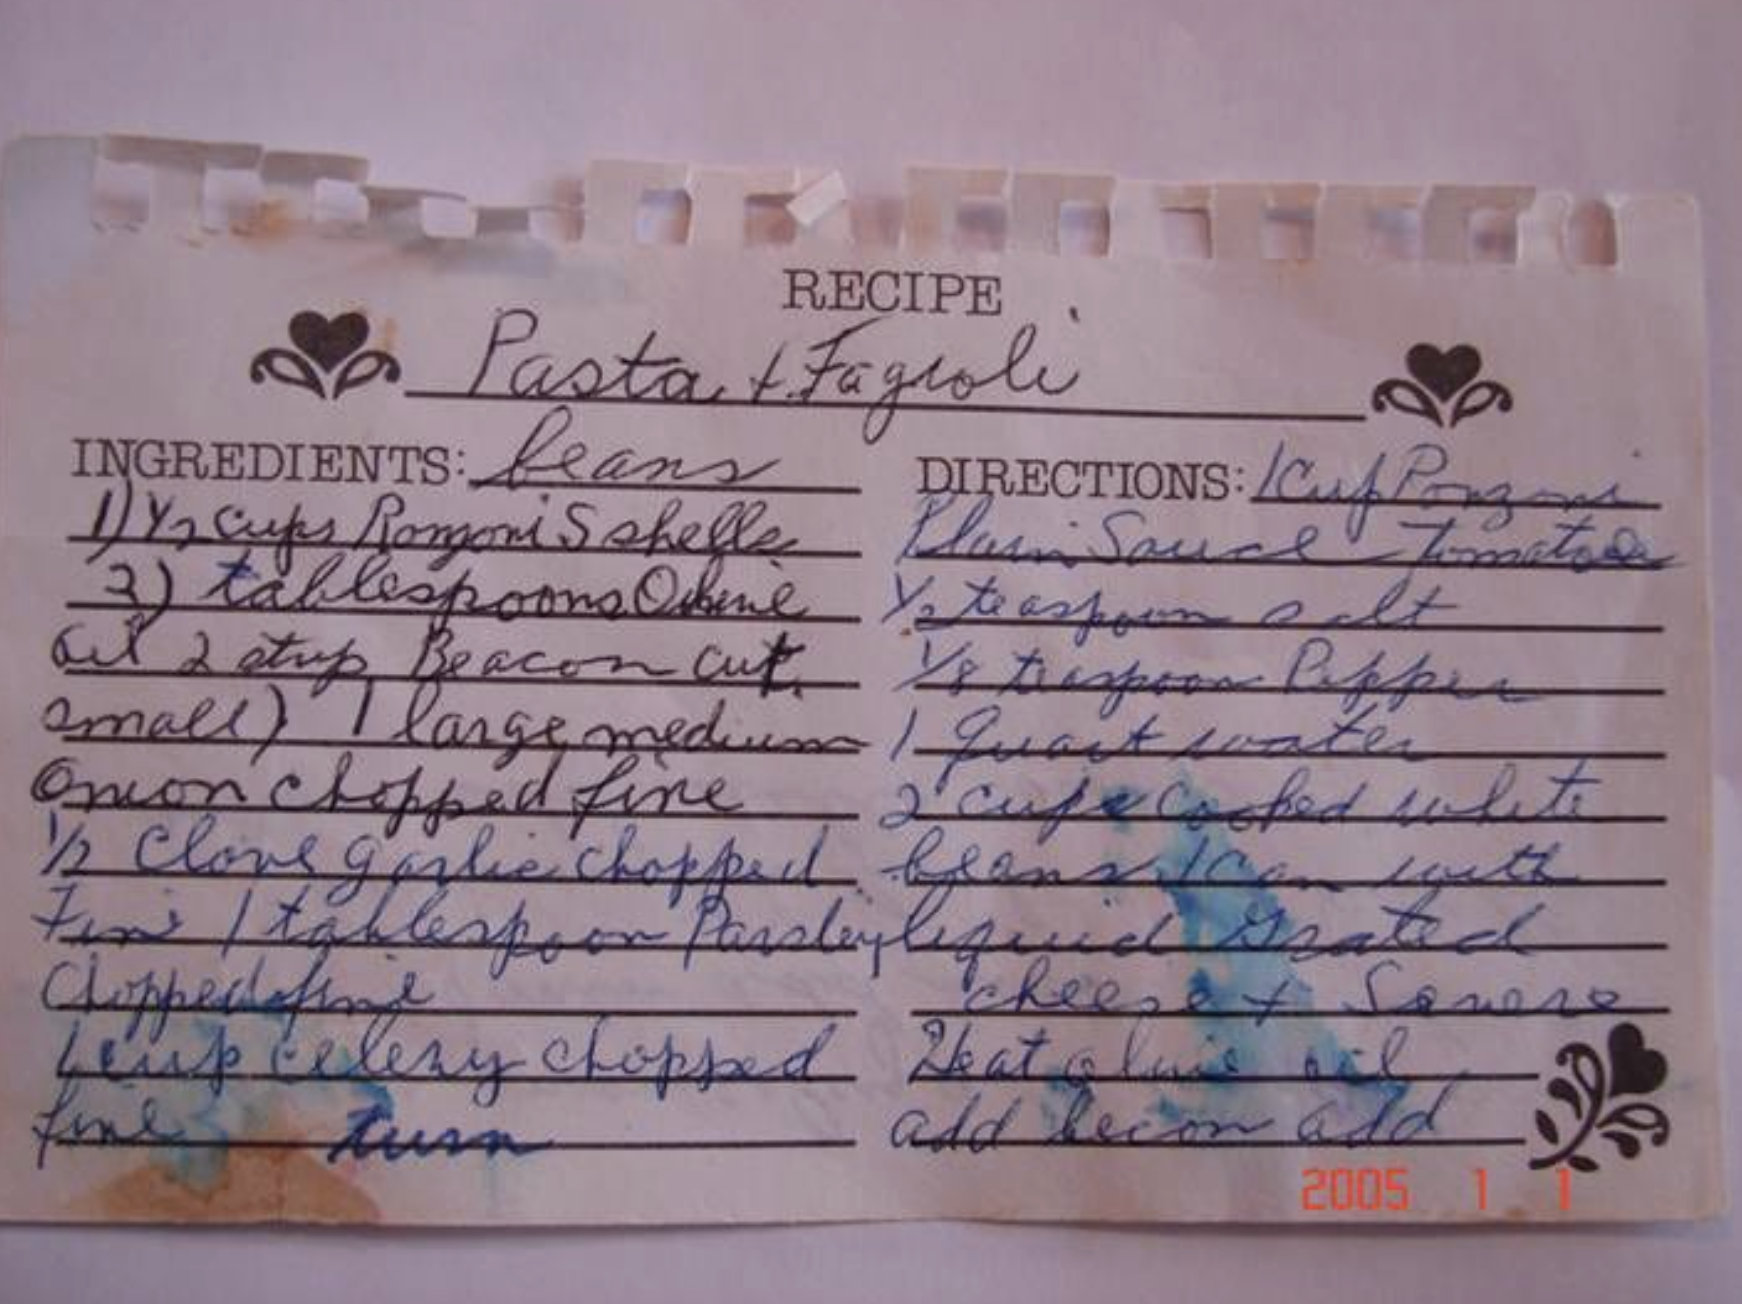 RECIPE
Pasta + Fagioli
INGREDIENTS: beans
1) 1/2 cups Ronzoni S shells
2) tablespoons Olive
Oil 2 strip Beacon cut
small) 1 large medium
Onion chopped fine
1/2 Clove garlic chopped
Fine 1 tablespoon Parsley
Chopped fine
1 cup celery chopped
fine turn
DIRECTIONS: 1 Cup Ronzoni
Plain Sauce Tomatoe
1/2 teaspoon salt
1/8 teaspoon Pepper
1 Quart water
2 cups cooked white
beans 1 Can with
liquid Grated
cheese +
Heat oluie oil
add becon add
2005 1 1